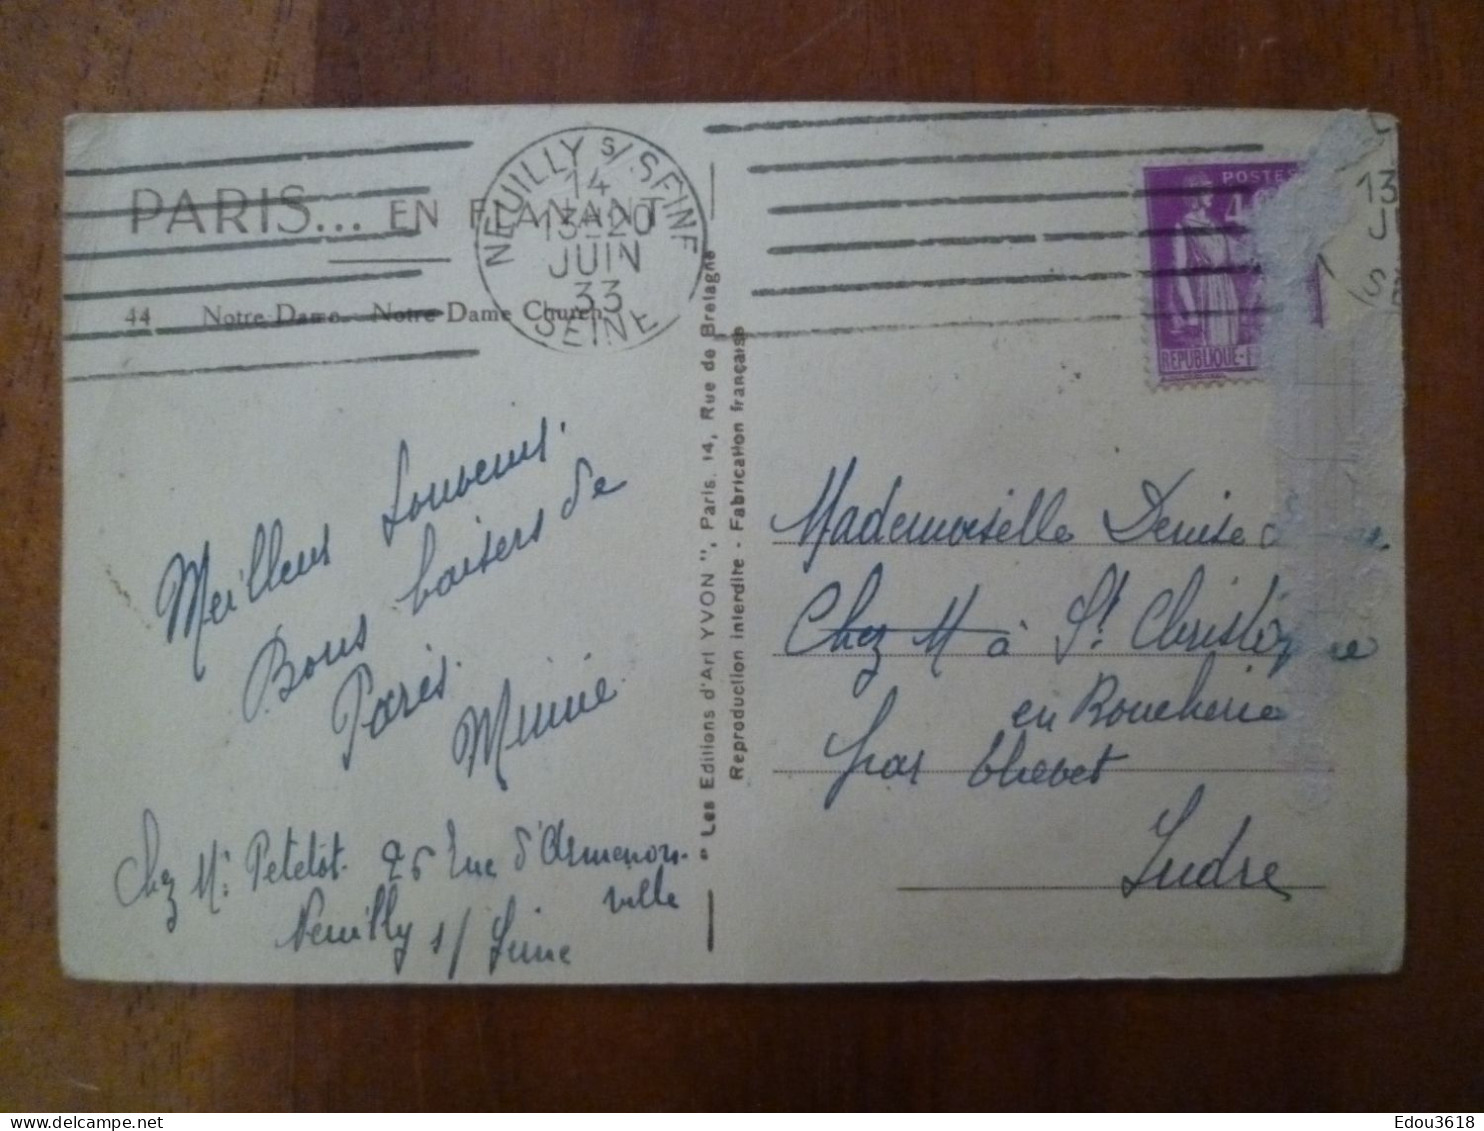 PARIS... EN FLANANT
44 Notre-Dame. Notre Dame Church
NEUILLY S/ SEINE
14
13-20
JUIN
33
SEINE
Meilleurs Souvenirs.
Bons baisers de
Paris.
Mimie
Chez Mr Petelot. 26 rue d'Armenon-
ville
Neuilly s/ Seine
"Les Editions d'Art YVON", Paris. 14, Rue de Bretagne
Reproduction interdite - Fabrication française
POSTES
REPUBLIQUE-F
13
J
(SE
Mademoiselle Denise
Chez M à St Christophe
en Boucherie
par Chabet
Indre
Edou3618